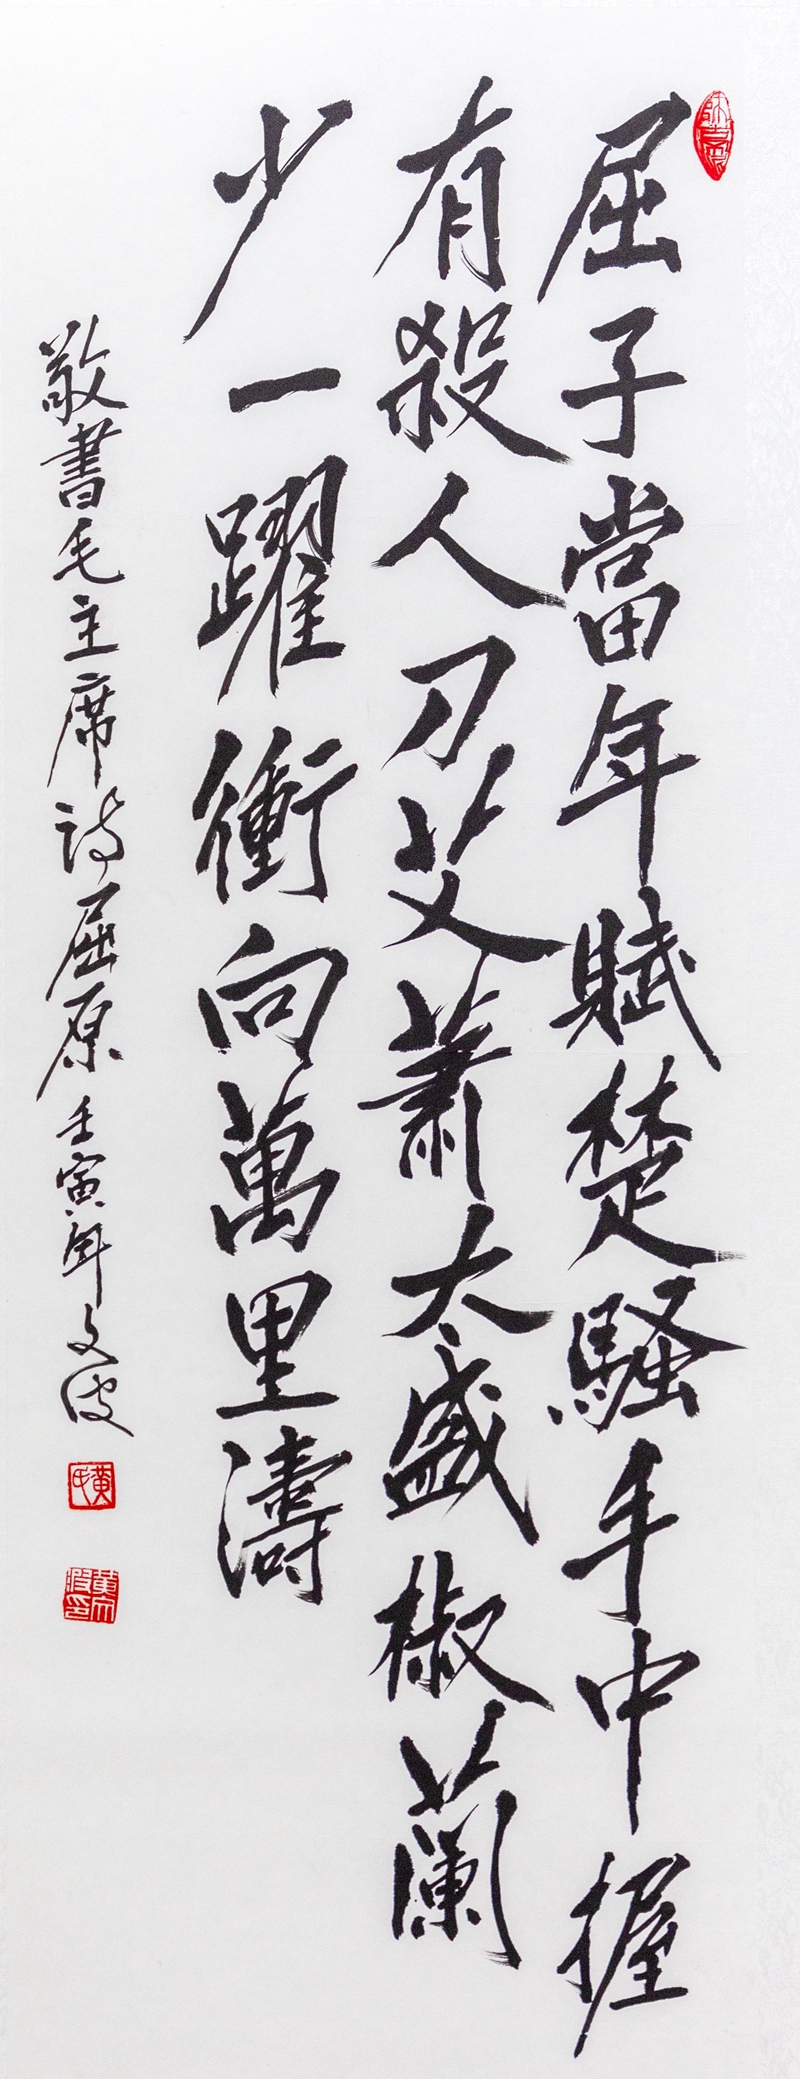 屈子當年賦楚騷手中握
有殺人刀艾蕭太盛椒蘭
少一躍衝向萬里濤
敬書毛主席詩屈原壬寅年文波
黄氏
黄文波印